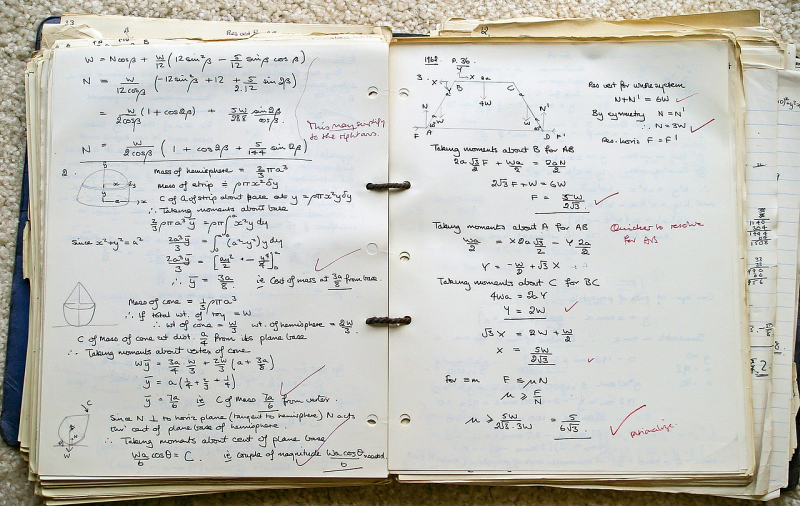 33
W = Ncosβ + W/12 (12 sin²β − 5/12 sinβ cosβ)
N = W/12cosβ (−12sin²β + 12 + 5/2.12 sin2β)
= W/2cosβ (1 + cos2β) + 5W/288 sin2β/cosβ.
This may simplify to the right ans.
N = W/2cosβ (1 + cos2β + 5/144 sin2β)
2.
Mass of hemisphere = 2/3 πa³
Mass of strip = ρπx²δy
C of G of strip about base as y = ρπx²yδy
∴ Taking moments about base
2/3 ρπa³ȳ = ρπ∫x²y dy
Since x²+y²=a² 2a³ȳ/3 = ∫(a²−y²)y dy
2a³ȳ/3 = [ay²/2 + −y⁴/4]
∴ ȳ = 3a/8 ie Cent of mass at 3a/8 from base.
Mass of cone = 1/3 ρπa³
∴ If total wt. of toy = W
∴ wt of cone = W/3 wt. of hemisphere = 2W/3.
C of Mass of cone at dist. a/4 from its plane base
∴ Taking moments about vertex of cone
Wȳ = 3a/4 . W/3 + 2W/3 (a + 3a/8)
ȳ = 7a/6 ie C of Mass 7a/6 from vertex.
Since N ⊥ to horiz plane (tangent to hemisphere) N acts
thro' cent of plane base of hemisphere.
∴ Taking moments about cent of plane base
Wa/6 cosθ = C. ie couple of magnitude Wa cosθ/6 needed.
1968 P.36
3.
X
Y
2a
B
C
4W
N
N'
W
W
F
A
D
F'
Res vert for whole system
N+N' = 6W
By symmetry N = N'
∴ N = 3W
Res. horiz F = F'
Taking moments about B for AB
2a√3/2 F + Wa/2 = 2aN/2
2√3F + W = 6W
F = 5W/2√3.
Taking moments about A for AB
Quicker to resolve for AB
Wa/2 = X2a√3/2 − Y 2a/2
Y = −W/2 + √3 X
Taking moments about C for BC
4Wa = 2aY
Y = 2W
√3X = 2W + W/2
X = 5W/2√3
F ≤ μN
μ ≥ F/N
μ ≥ 5W/2√3.3W = 5/6√3.
rationalize